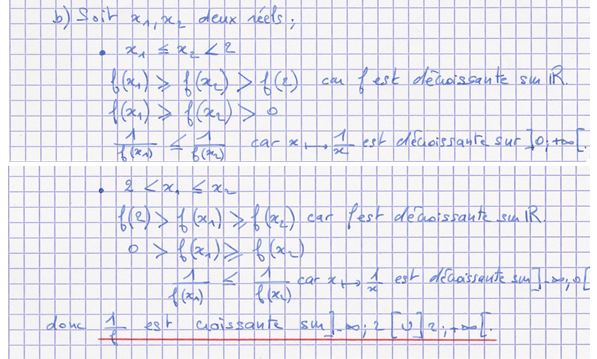 b) Soit x₁, x₂ deux réels ;
• x₁ ≤ x₂ < 2
f(x₁) ⩾ f(x₂) > f(2) car f est décroissante sur ℝ.
f(x₁) ⩾ f(x₂) > 0
1/f(x₁) ≤ 1/f(x₂) car x ↦ 1/x est décroissante sur ]0; +∞[.
• 2 < x₁ ≤ x₂
f(2) > f(x₁) ⩾ f(x₂) car f est décroissante sur ℝ.
0 > f(x₁) ⩾ f(x₂)
1/f(x₁) ≤ 1/f(x₂) car x ↦ 1/x est décroissante sur ]-∞; 0[
donc 1/f est croissante sur ]-∞; 2[ U ]2; +∞[.